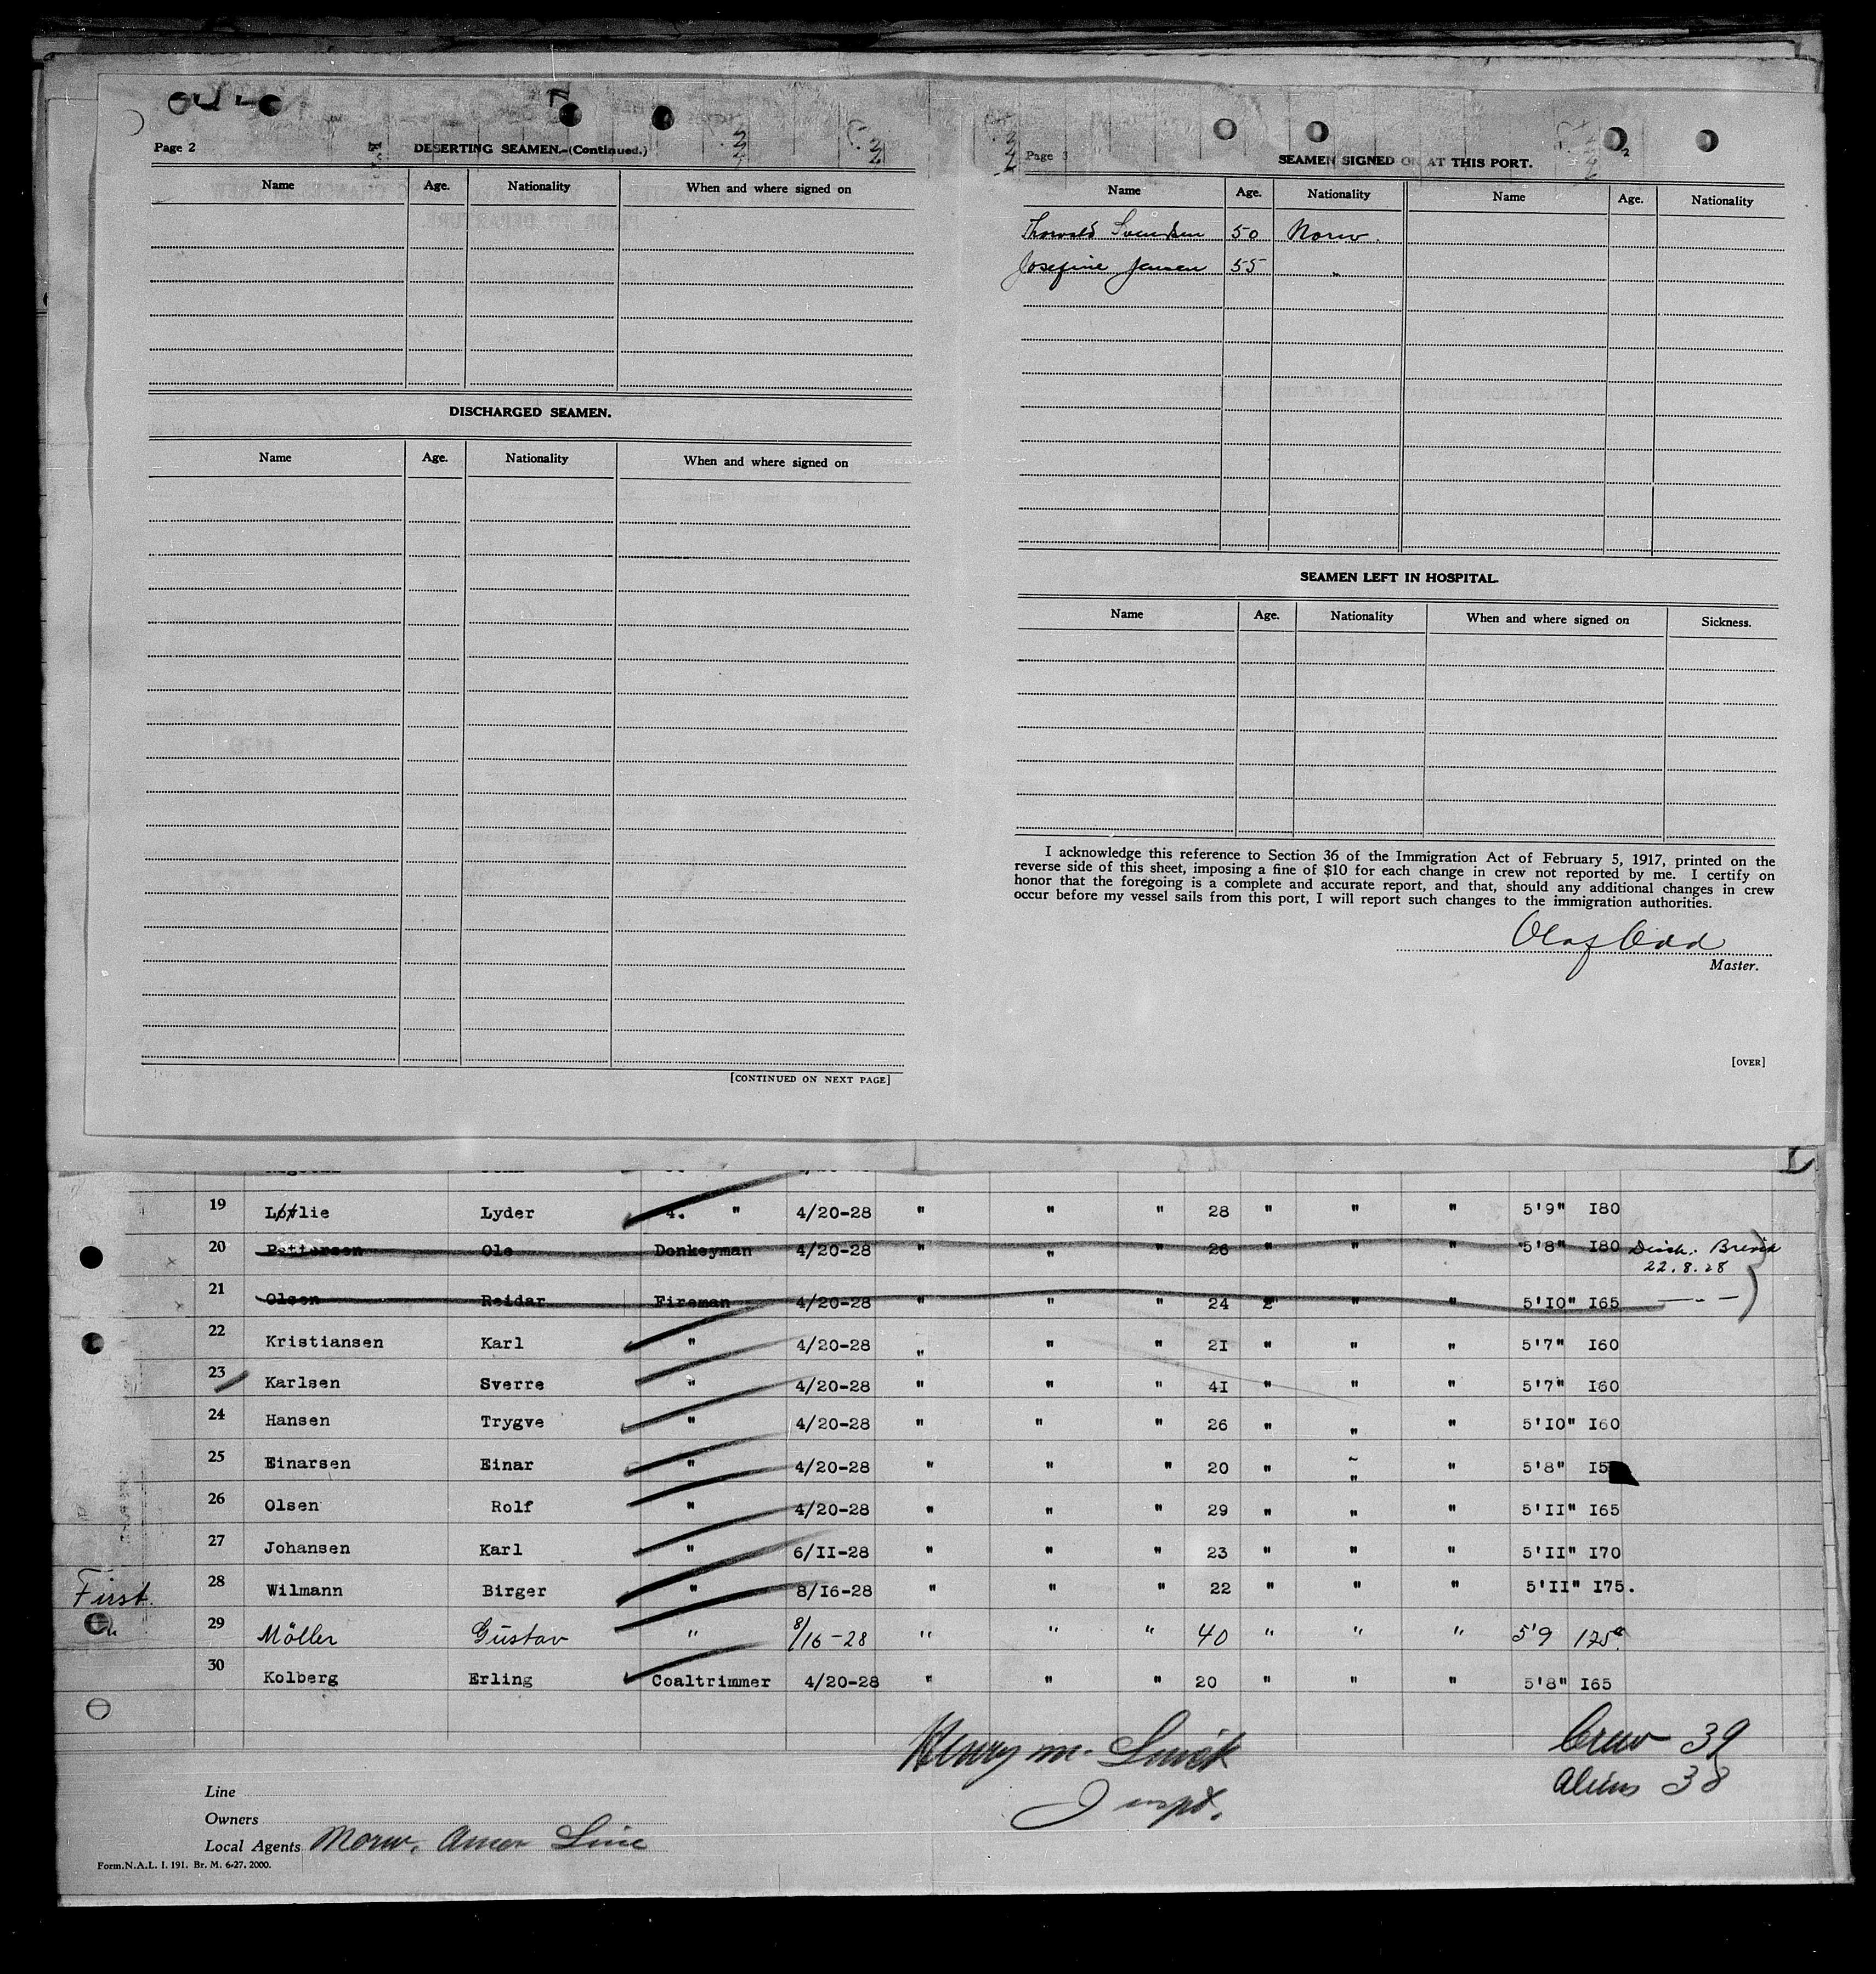 Page 2
DESERTING SEAMEN.-(Continued.)
Name Age. Nationality When and where signed on
DISCHARGED SEAMEN.
Name Age. Nationality When and where signed on
[CONTINUED ON NEXT PAGE]
Page 3
SEAMEN SIGNED ON AT THIS PORT.
Name Age. Nationality Name Age. Nationality
Thorvald Svendsen 50 Norw.
Josefine Jensen 55 "
SEAMEN LEFT IN HOSPITAL.
Name Age. Nationality When and where signed on Sickness.
I acknowledge this reference to Section 36 of the Immigration Act of February 5, 1917, printed on the
reverse side of this sheet, imposing a fine of $10 for each change in crew not reported by me. I certify on
honor that the foregoing is a complete and accurate report, and that, should any additional changes in crew
occur before my vessel sails from this port, I will report such changes to the immigration authorities.
Olaf Odd
Master.
[OVER]
19 Lyder 4. " 4/20-28 " " " 28 " " " 5'9" I80
20 Pettersen Ole Donkeyman 4/20-28 " " " 26 " " " 5'8" I80 Disch. Brevik
22.8.28
21 Olsen Reidar Fireman 4/20-28 " " " 24 " " 5'IO" I65 — " —
22 Kristiansen Karl " 4/20-28 " " " 2I " " " 5'7" I60
23 Karlsen Sverre " 4/20-28 " " " 4I " " " 5'7" I60
24 Hansen Trygve " 4/20-28 " " " 26 " " " 5'IO" I60
25 Einarsen Einar " 4/20-28 " " " 20 " " " 5'8"
26 Olsen Rolf " 4/20-28 " " " 29 " " " 5'II" I65
27 Johansen Karl " 6/II-28 " " " 23 " " " 5'II" I70
First. 28 Wilmann Birger " 8/I6-28 " " " 22 " " " 5'II" I75.
" 29 Möller Gustav " 8/16-28 " " " 40 " " " 5'9 175
30 Kolberg Erling Coaltrimmer 4/20-28 " " " 20 " " " 5'8" I65
Henry M.
Inspt.
Crew 39
Aliens 38
Line
Owners
Local Agents Norw. Amer Line
Form.N.A.L. I. 191. Br. M. 6-27. 2000.